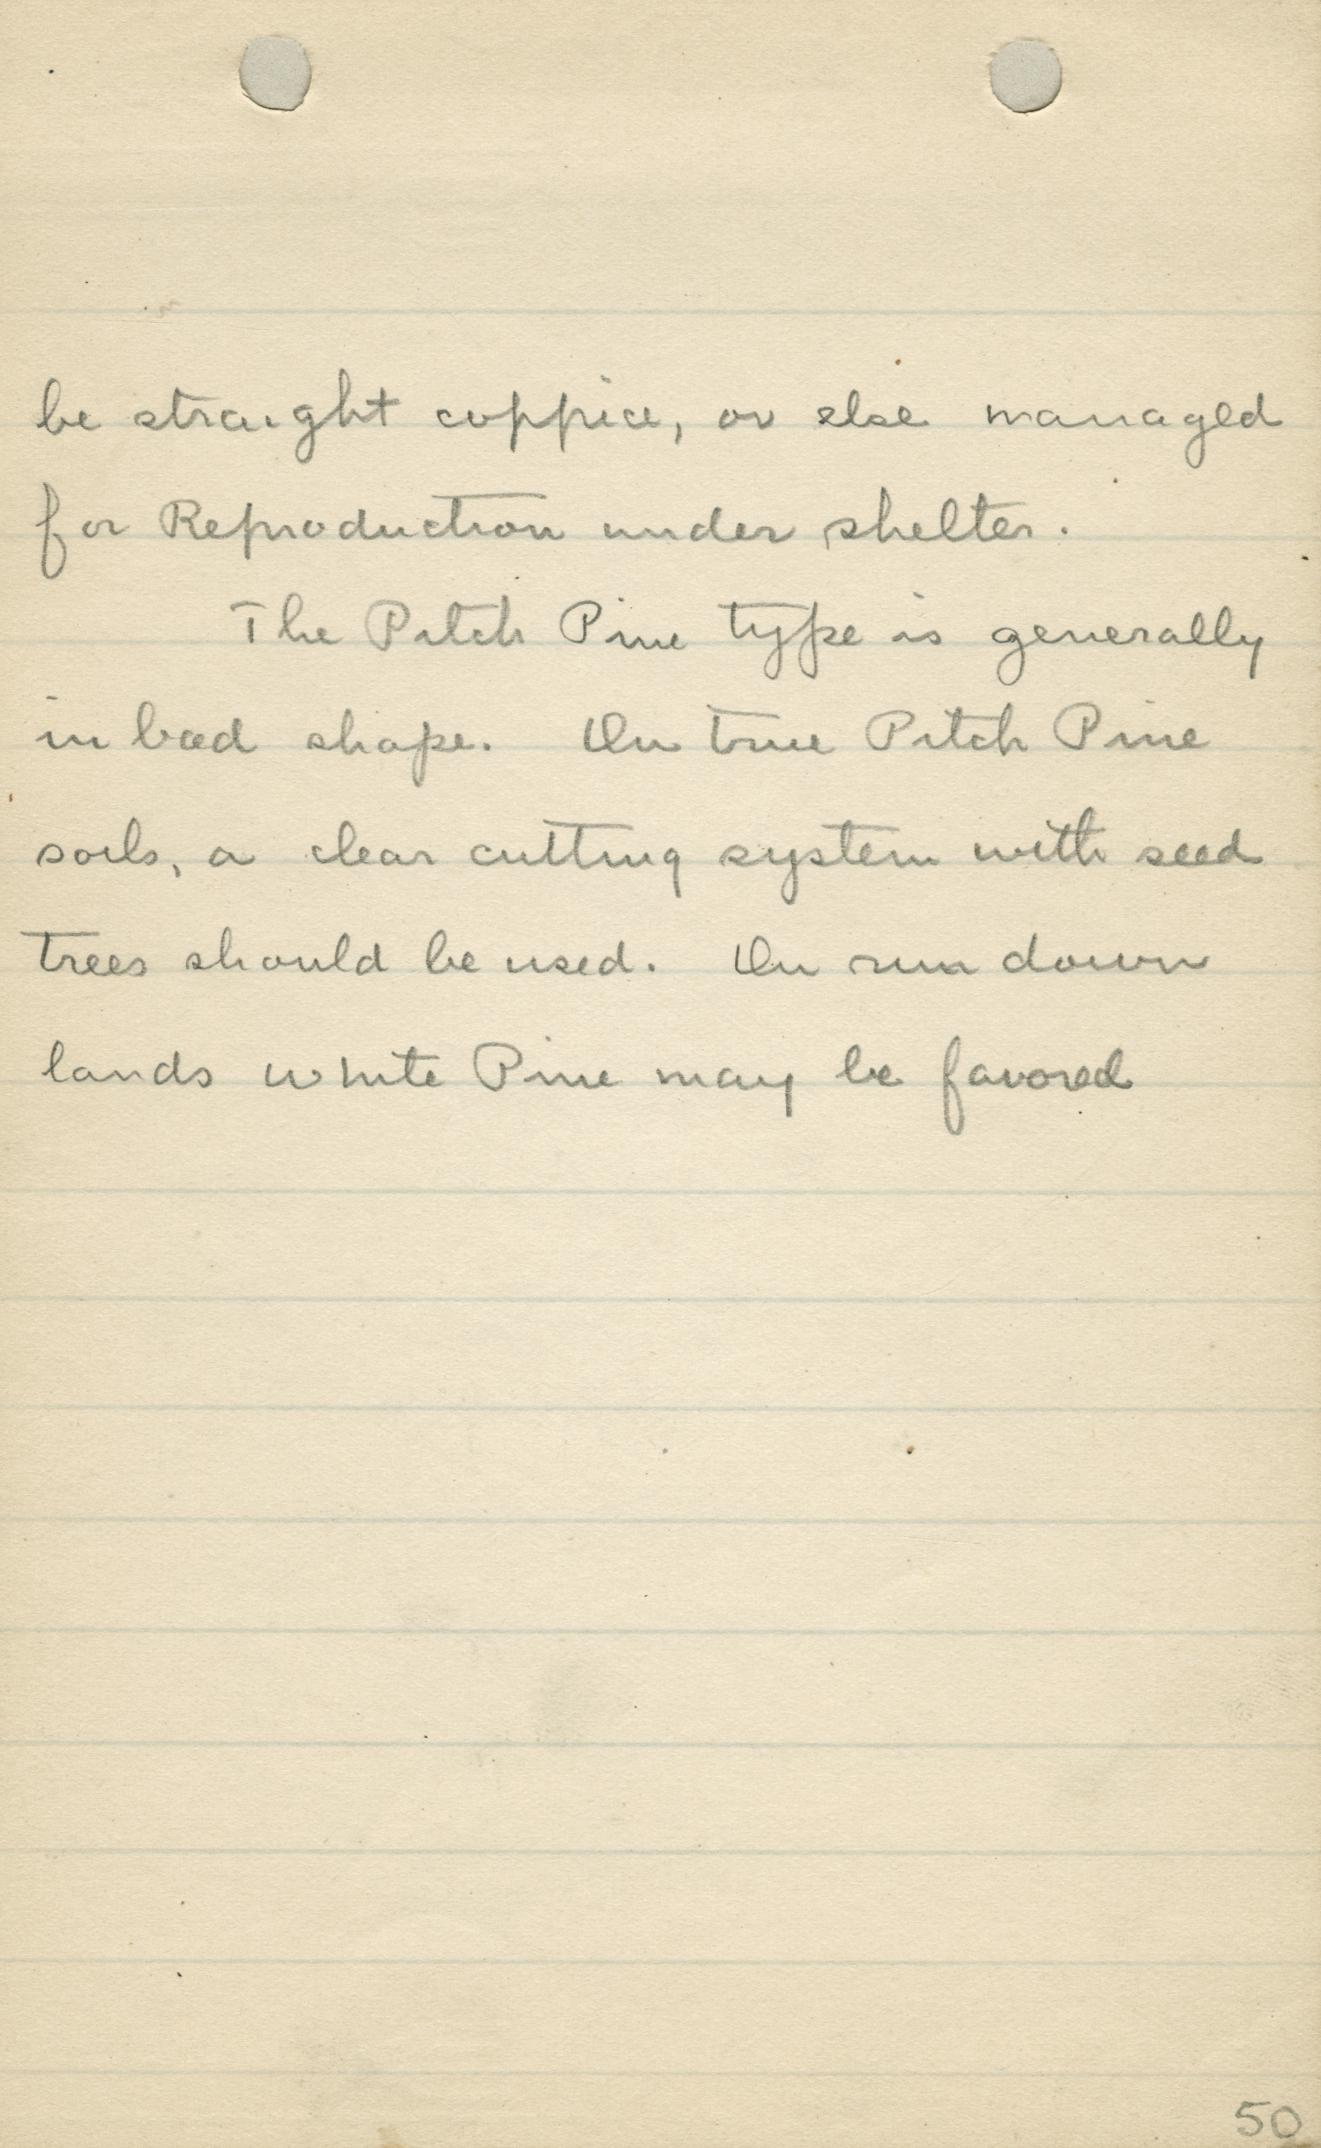 be straight coppice, or else managed
for Reproduction under shelter.
The Pitch Pine type is generally
in bad shape. On true Pitch Pine
soils, a clear cutting system with seed
trees should be used. On run down
lands white Pine may be favored
50